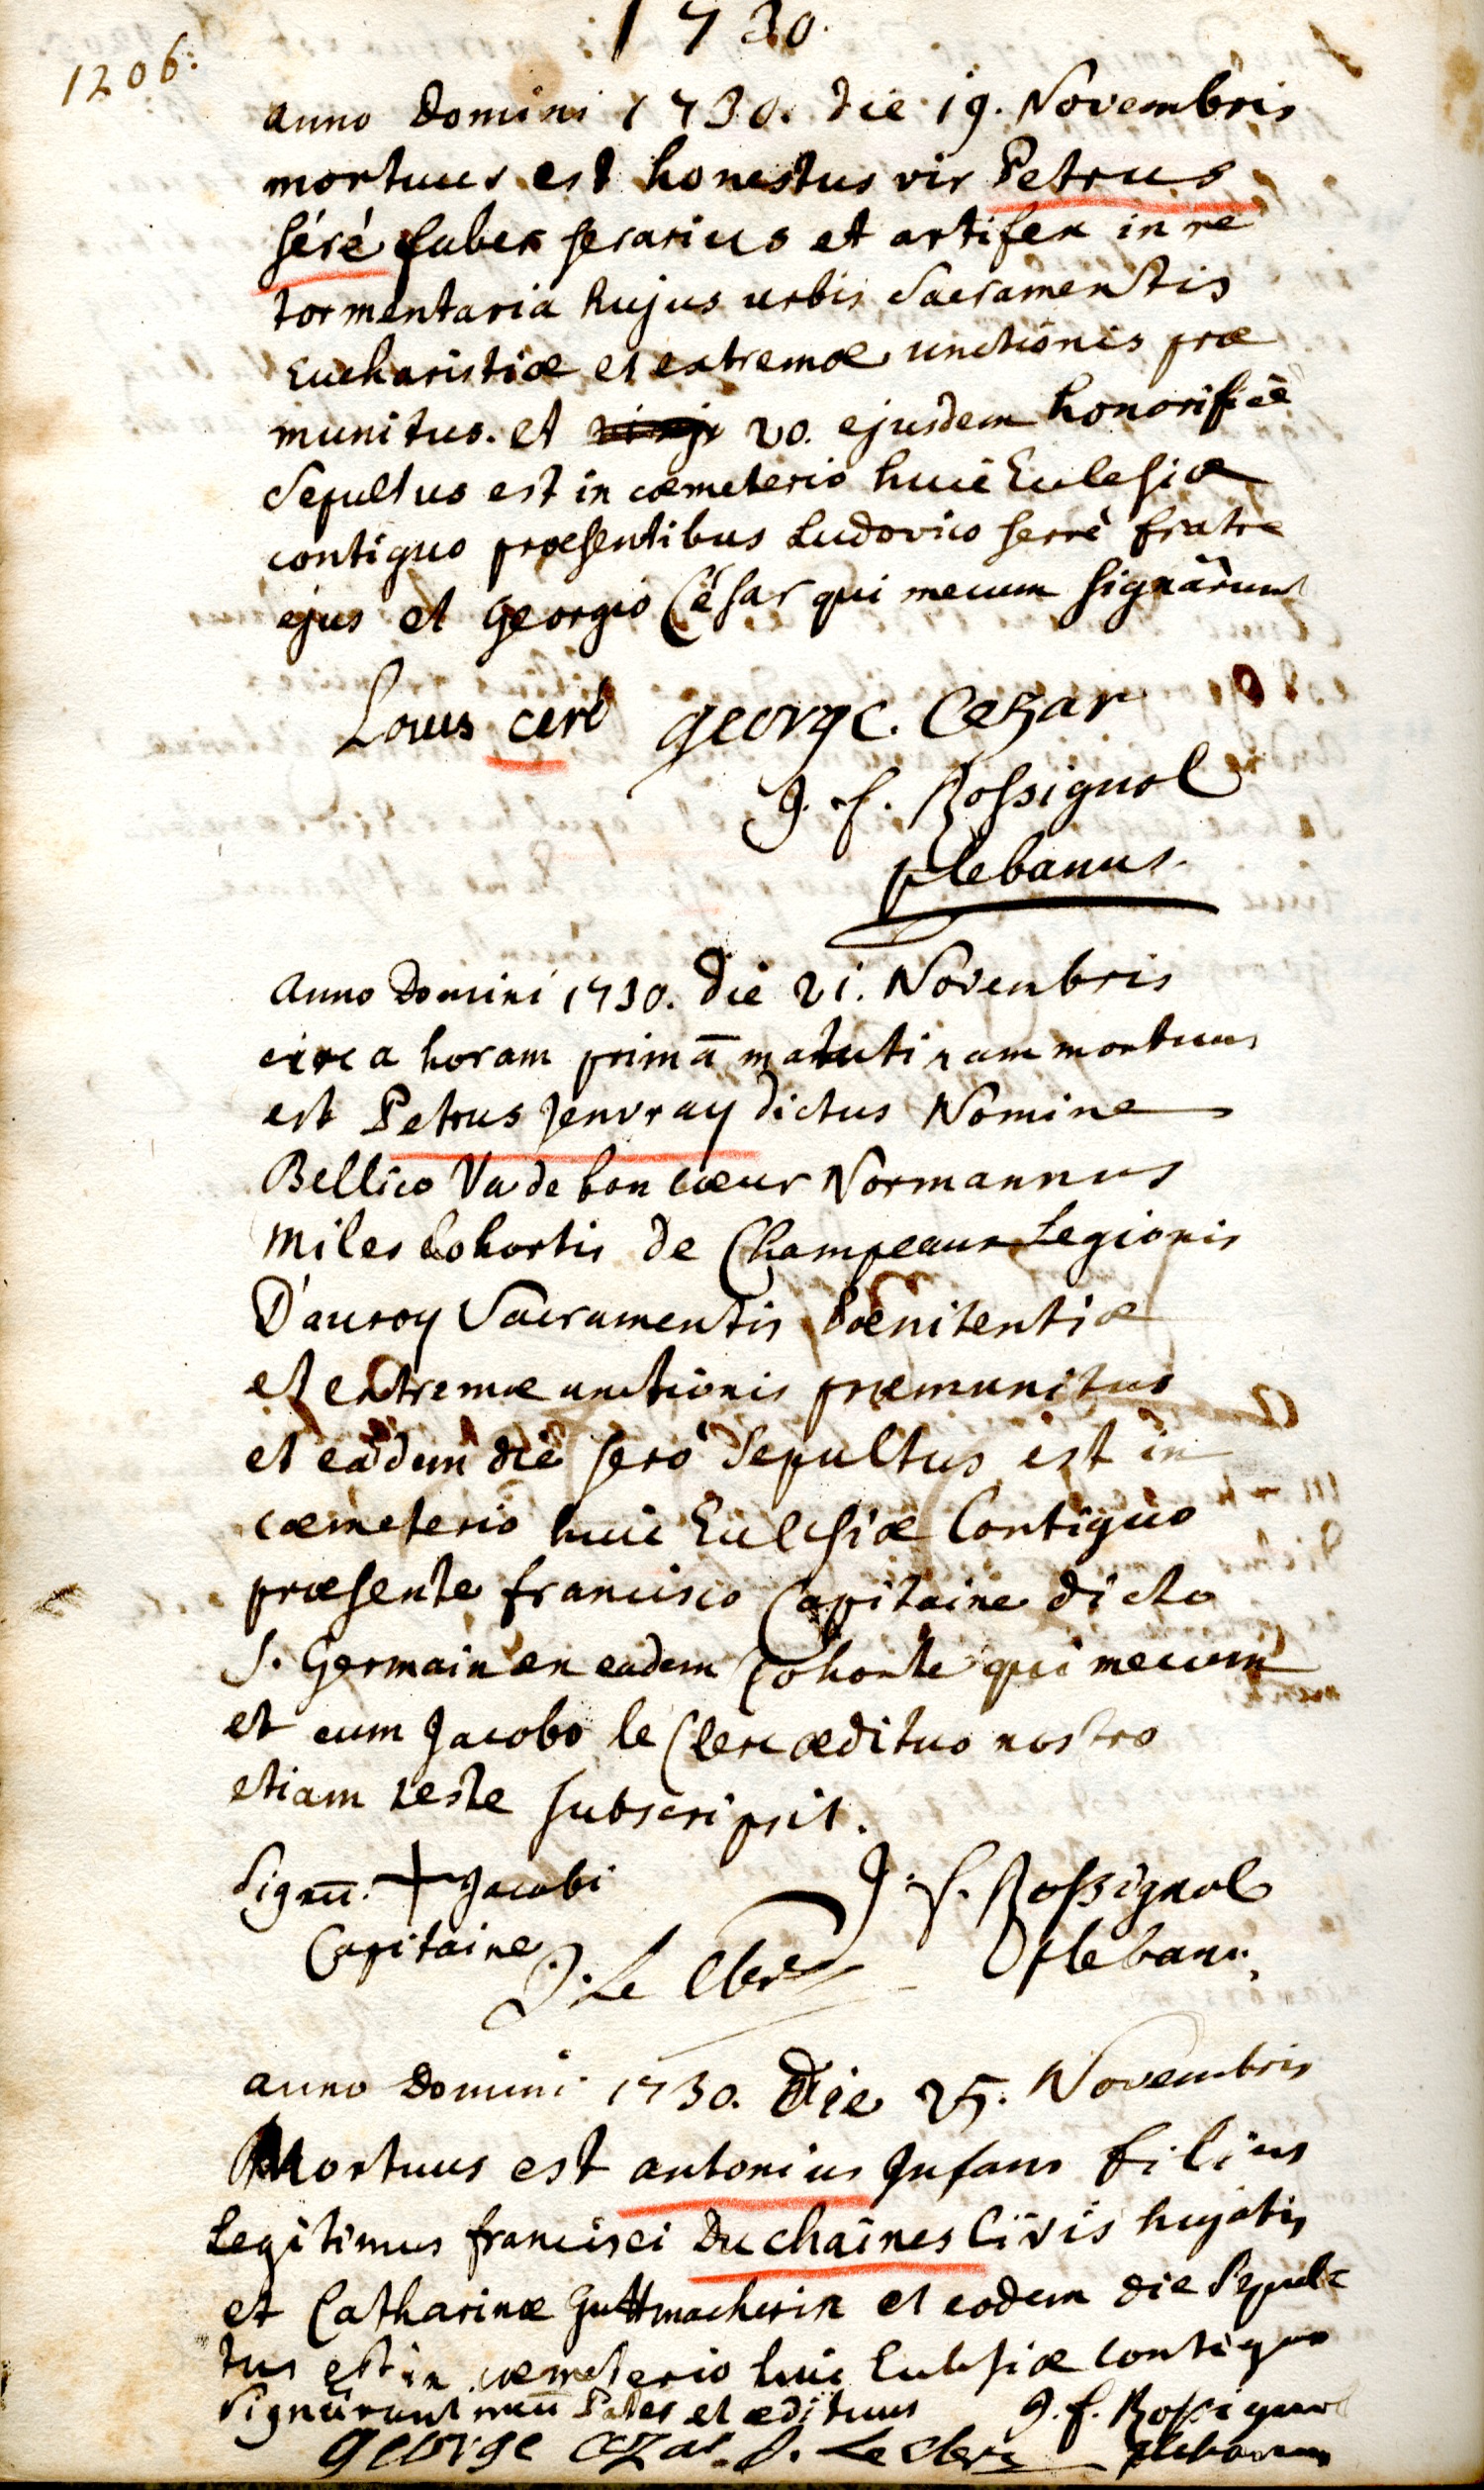 1730.
1206.
anno Domini 1730. die 19. Novembris
mortuus est honestus vir Petrus
séré faber serarius et artifex in re
tormentaria hujus urbis Sacramentis
Eucharistiæ et extremæ unctionis præ
munitus. et 20. ejusdem honorificè
Sepultus est in cœmeterio huic Ecclesiæ
contiguo præsentibus Ludovico serré fratre
ejus et georgio César qui mecum signârunt
Louis ceré george. Cezar
J. f. Rossignol
plebanus.
anno Domini 1730. die 21. Novembris
circa horam primā matutinam mortuus
est Petrus Jenvray dictus Nomine
Bellico Va de bon cœur Normannus
Miles Cohortis de Champeaux Legionis
D'auroy Sacramentis Pœnitentiæ
et extremæ unctionis præmunitus
et eâdem die serò Sepultus est in
cœmeterio huic Ecclesiæ Contiguo
præsente francisco Capitaine dicto
S. Germain ex eadem Cohorte qui mecum
et cum Jacobo le Clerc ædituo nostro
etiam teste subscripsit.
Signū. + Jacobi
Capitaine
J. Le Clerc
J. f. Rossignol
plebanus
anno Domini 1730. Die 25. Novembris
Mortuus est antonius Infans filius
Legitimus francisci Duchaines Civis hujatis
et Catharinæ Guttmacherin et eodem die Sepul-
tus est in cœmeterio huic Ecclesiæ contiguo
Signârunt mecū Pater et ædituus J. f. Rossignol
george cezar J. Le Clerc plebanus